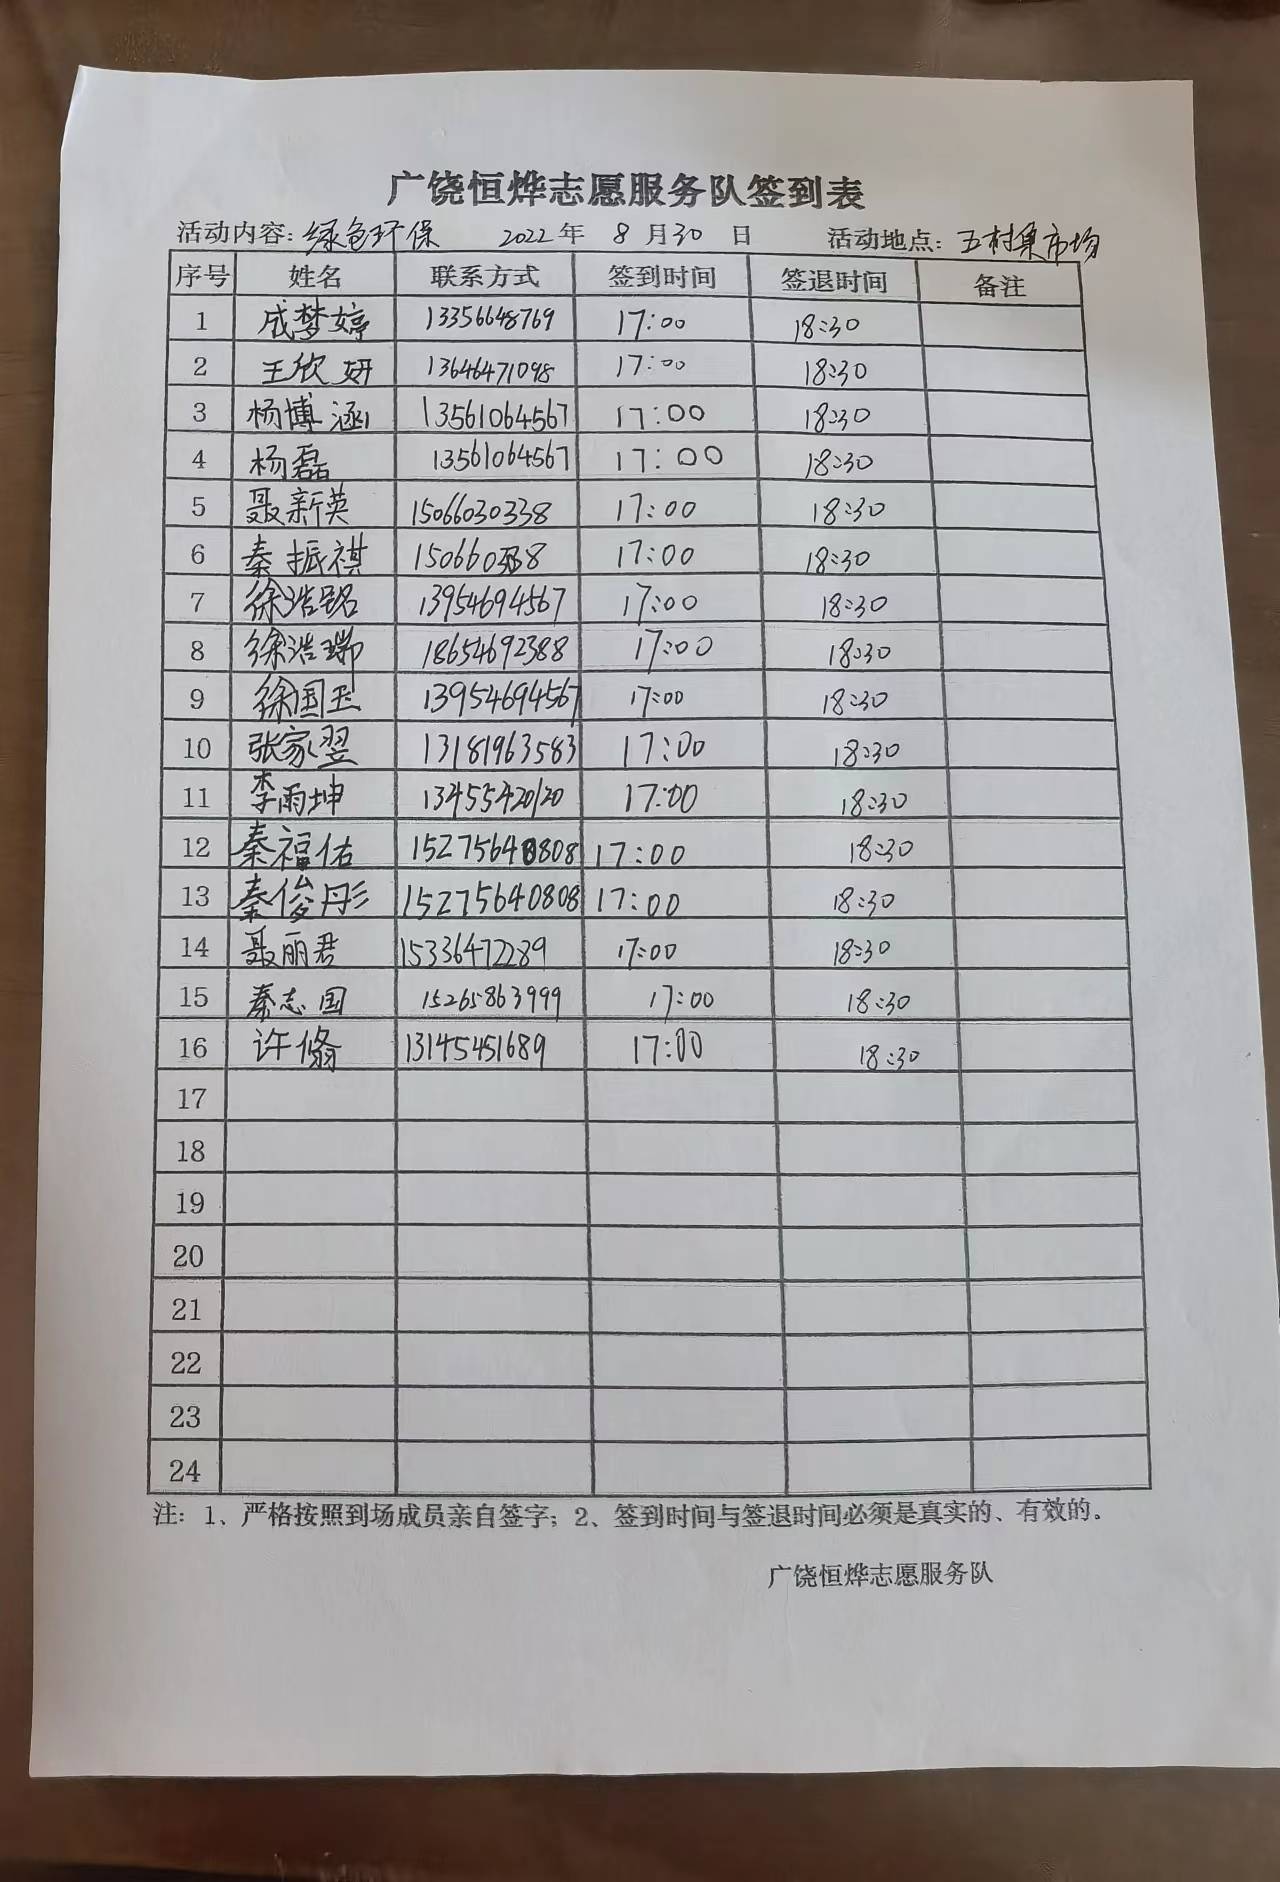 广饶恒烨志愿服务队签到表
活动内容：绿色环保 2022年 8月30日 活动地点：五村集市场
序号 姓名 联系方式 签到时间 签退时间 备注
1 成梦婷 13356648769 17:00 18:30
2 王欣妍 13646471098 17:00 18:30
3 杨博涵 13561064567 17:00 18:30
4 杨磊 13561064567 17:00 18:30
5 聂新英 15066030338 17:00 18:30
6 秦振祺 17:00 18:30
7 徐浩铭 13954694567 17:00 18:30
8 徐浩瑞 18654692388 17:00 18:30
9 徐国玉 13954694567 17:00 18:30
10 张家翌 13181963583 17:00 18:30
11 李雨坤 13455420120 17:00 18:30
12 秦福佑 15275640808 17:00 18:30
13 秦俊彤 15275640808 17:00 18:30
14 聂丽君 15336472289 17:00 18:30
15 秦志国 15265863999 17:00 18:30
16 许翛 13145451689 17:00 18:30
17
18
19
20
21
22
23
24
注：1、严格按照到场成员亲自签字；2、签到时间与签退时间必须是真实的、有效的。
广饶恒烨志愿服务队